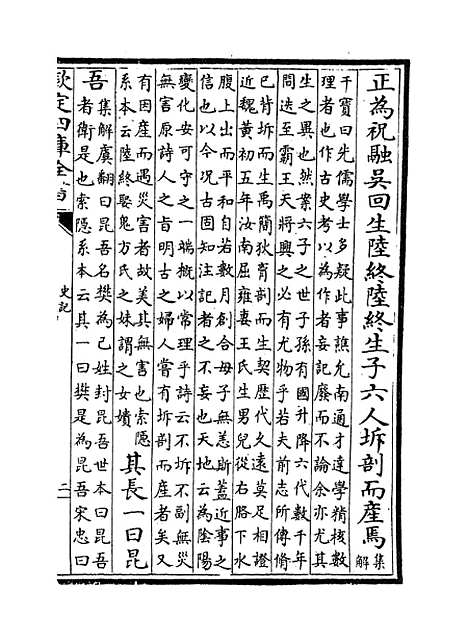 正為祝融吳回生陸終陸終生子六人坼剖而產焉集
解
干寶曰先儒學士多疑此事譙允南通才達學精核數
理者也作古史考以為作者妄記廢而不論余亦尤其
生之異也然案六子之世子孫有國升降六代數千年
間迭至霸王天將興之必有尤物乎若夫前志所傳脩
巳背坼而生禹簡狄胷剖而生契歷代久遠莫足相證
近魏黃初五年汝南屈雍妻王氏生男兒從右胳下水
腹上出而平和自若數月創合母子無恙斯蓋近事之
信也以今況古固知注記者之不妄也天地云為隂陽
變化安可守之一端概以常理乎詩云不坼不副無災
無害原詩人之旨明古之婦人嘗有坼剖而產者矣又
有因產而遇災害者故美其無害也索隱
系本云陸終娶鬼方氏之妹謂之女嬇
其長一曰昆
吾
集解虞翻曰昆吾名樊為己姓封昆吾世本曰昆吾
者衛是也索隱系本云其一曰樊是為昆吾宋忠曰
欽定四庫全書
史記
二